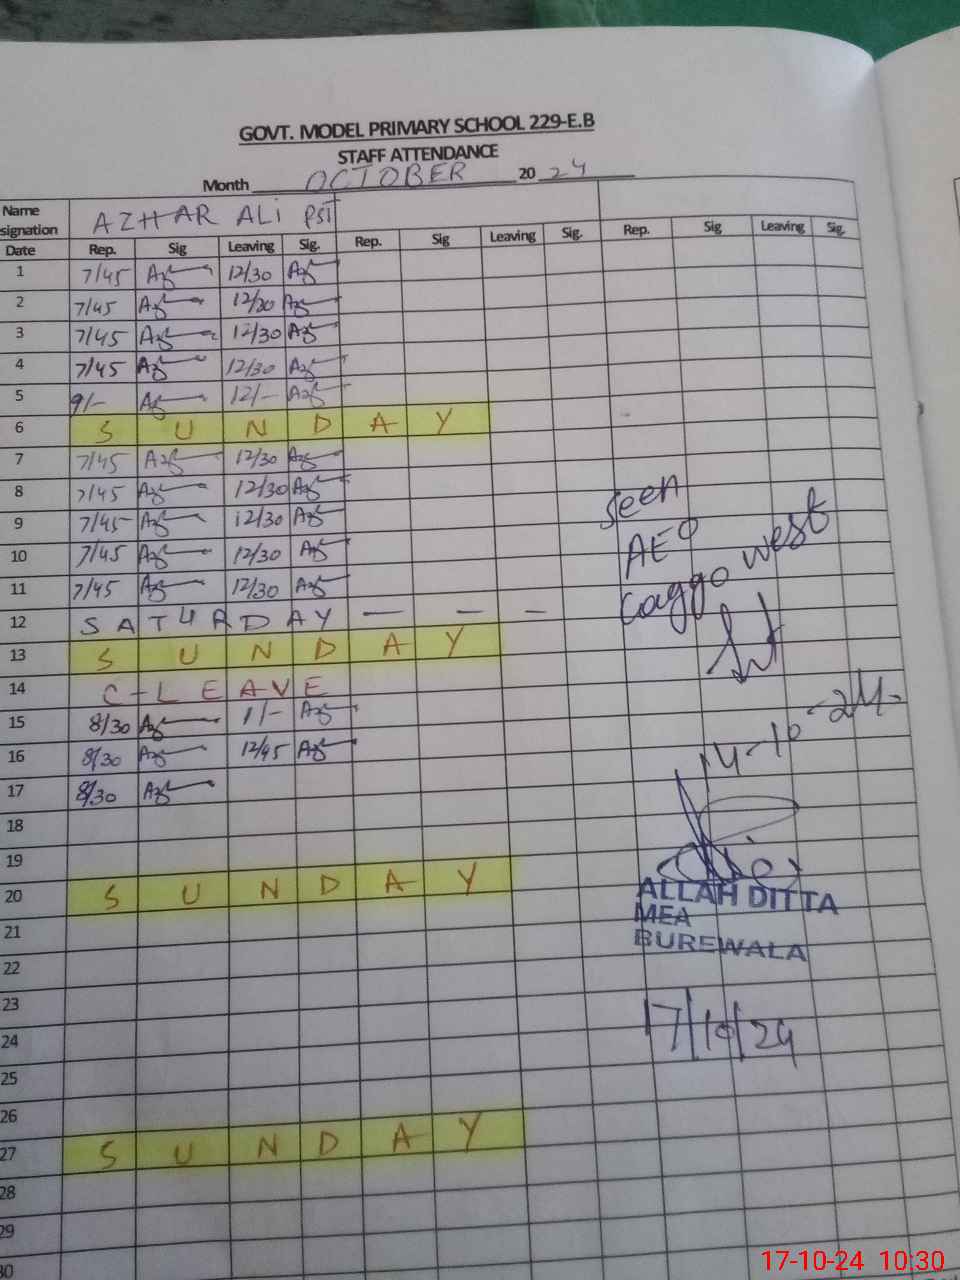 GOVT. MODEL PRIMARY SCHOOL 229-E.B
STAFF ATTENDANCE
Month OCTOBER 20 24
Name
signation AZHAR ALI PST
Date Rep. Sig Leaving Sig. Rep. Sig Leaving Sig. Rep. Sig Leaving Sig.
1 7/45 12/30
2 7/45 12/30
3 7/45 12/30
4 7/45 12/30
5 9/- 12/-
6 SUNDAY
7 7/45 12/30
8 7/45 12/30
9 7/45 12/30
10 7/45 12/30
11 7/45 12/30
12 SATURDAY - - -
13 SUNDAY
14 C-LEAVE
15 8/30 1/-
16 8/30 12/45
17 8/30
18
19
20 SUNDAY
21
22
23
24
25
26
27 SUNDAY
28
29
30
Seen
AEO
Gaggo west
14-10-24
ALLAH DITTA
MEA
BUREWALA
17/10/24
17-10-24 10:30